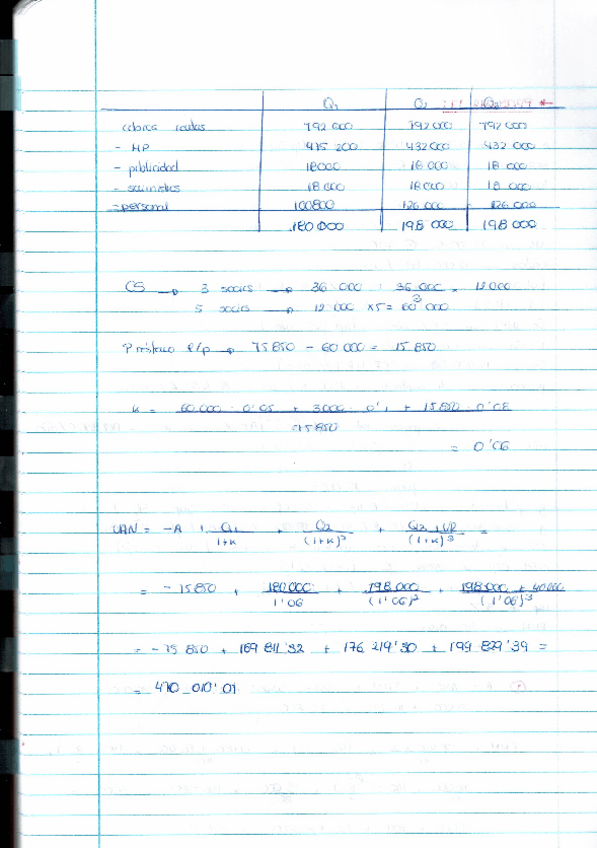 Q1 Q2 Q3
cobros ventas 792 000 792 000 792 000
- MP 475 200 432 000 432 000
- publicidad 18000 18 000 18 000
- suministros 18 000 18 000 18 000
- personal 100800 126 000 126 000
180 000 198 000 198 000
CS → 3 socios → 36 000 36 000 = 12 000
3
5 socios → 12 000 x5 = 60 000
Préstamo l/p → 75 850 - 60 000 = 15 850
k = 60.000 · 0'05 + 3000 · 0'1 + 15 850 · 0'08
75 850
= 0'06
VAN = -A + Q1 + Q2 + Q3 + VR =
1+k (1+k)² (1+k)³
= - 75 850 + 180 000 + 198.000 + 198 000 + 40 000
1'06 (1'06)² (1'06)³
= - 75 850 + 169 811'32 + 176 219'30 + 199 829'39 =
= 470 010'01